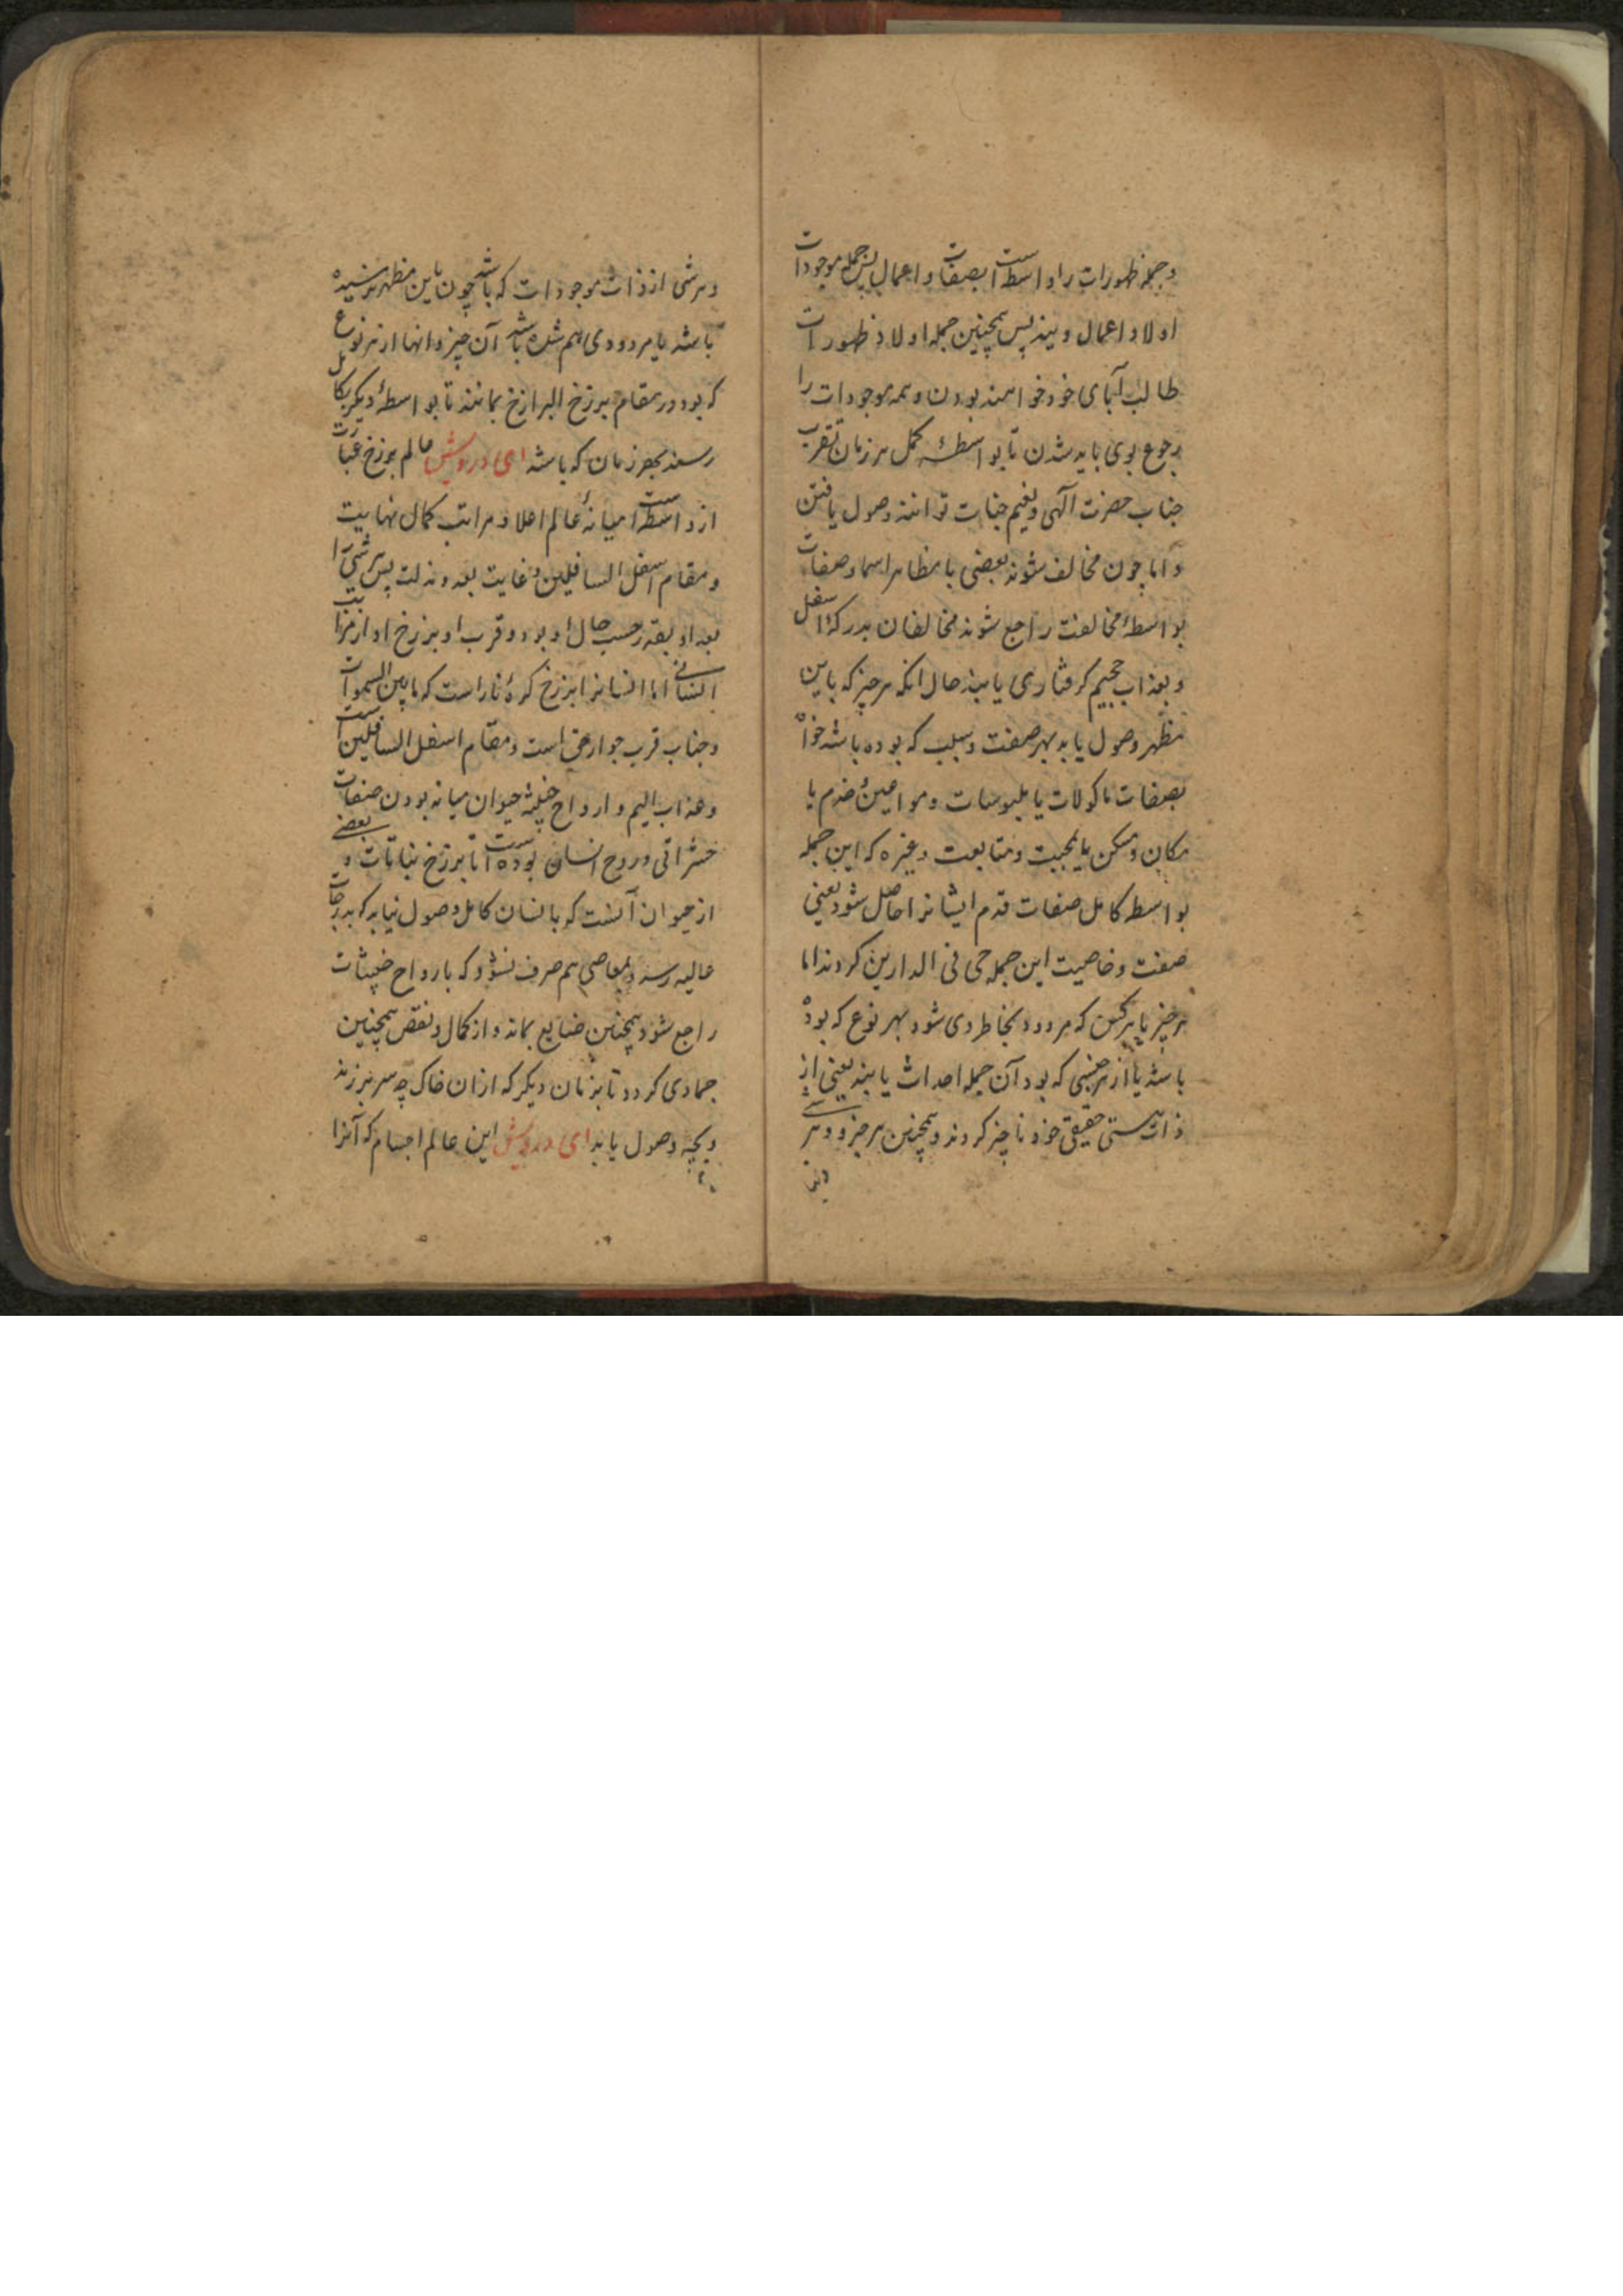 و جمله ظهورات را واسطه است بصفات و اعمال پس جمله موجودات
اولاد اعمال ویند پس همچنین جمله اولاد ظهورات
طالب آبای خود خواهند بودن و همه موجودات را
رجوع بوی باید شدن تا بواسطهٔ کمل هر زمان تقرب
جناب حضرت الهی و نعیم جنات توانند وصول یافتن
و اما چون مخالف شوند بعضی با مظاهر اسما و صفات
بواسطهٔ مخالفت راجع شوند مخالفان بدرکهٔ اسفل
و بعذاب جحیم گرفتاری یابند حال آنکه هر چیز که باین
مظهر وصول یابد بهر صفت و سبب که بوده باشد خواه
بصفات ماکولات یا ملبوسات و یا
مکان و مسکن یا محبت و متابعت و غیره که این جمله
بواسطه کامل صفات قدم ایشانرا حاصل شود یعنی
صفت و خاصیت این جمله حی فی الدارین کردند اما
هر چیز یا هر کس که مردود بخاطر وی شود بهر نوع که بوده
باشد یا از هر جنسی که بود آن جمله احداث یابند یعنی از
ذات هستی حقیقی خود ناچیز کردند و همچنین هر جزو و هر شی
و هر شی از ذات موجودات که باشد چون باین مظهر نرسیده
باشد یا مردود وی هم شده باشد آن چیز و انها از هر نوع
که بود در مقام برزخ البرازخ بمانند تا بواسطهٔ دیگر بکامل
رسند بهر زمان که باشد ای درویش عالم برزخ عبارت
از واسطه است میانهٔ عالم اعلا و مراتب کمال نهایت
و مقام اسفل السافلین و غایت بعد و مذلت پس هر شی را
بعد او بقدر حسب حال او بود و قرب او برزخ او از مراتب
انسانی اما انسانرا برزخ کرهٔ نار است که مابین السموات
و جناب قرب جوار حق است و مقام اسفل السافلین است
و عذاب الیم و ارواح خبیثه حیوان میانه بودن صفات
حشراتی و روح انسان بوده است اما برزخ نباتات و بعضی
از حیوان آنست که بانسان کامل وصول نیابد که بدرجات
عالیه رسد و بمعاصی هم صرف نشود که بارواح خبیثات
راجع شود همچنین ضایع بماند و از کمال و نقص همچنین
جمادی کردد تا بزمان دیگر که از ان خاک چه سر برزند
و بچه وصول یابد ای درویش این عالم اجسام که آنرا